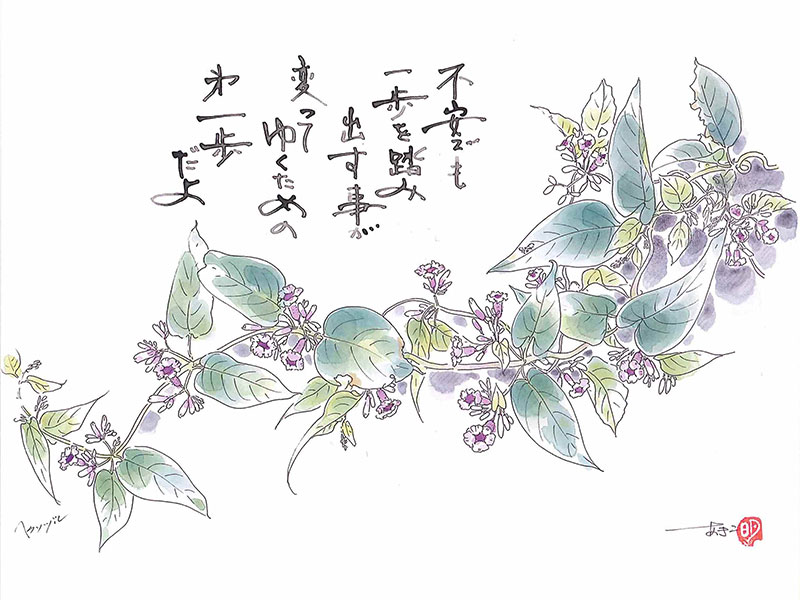 不安でも
一歩を踏み
出す事が…
変って
ゆくための
第一歩
だよ
ヘクソヅル
あきこ